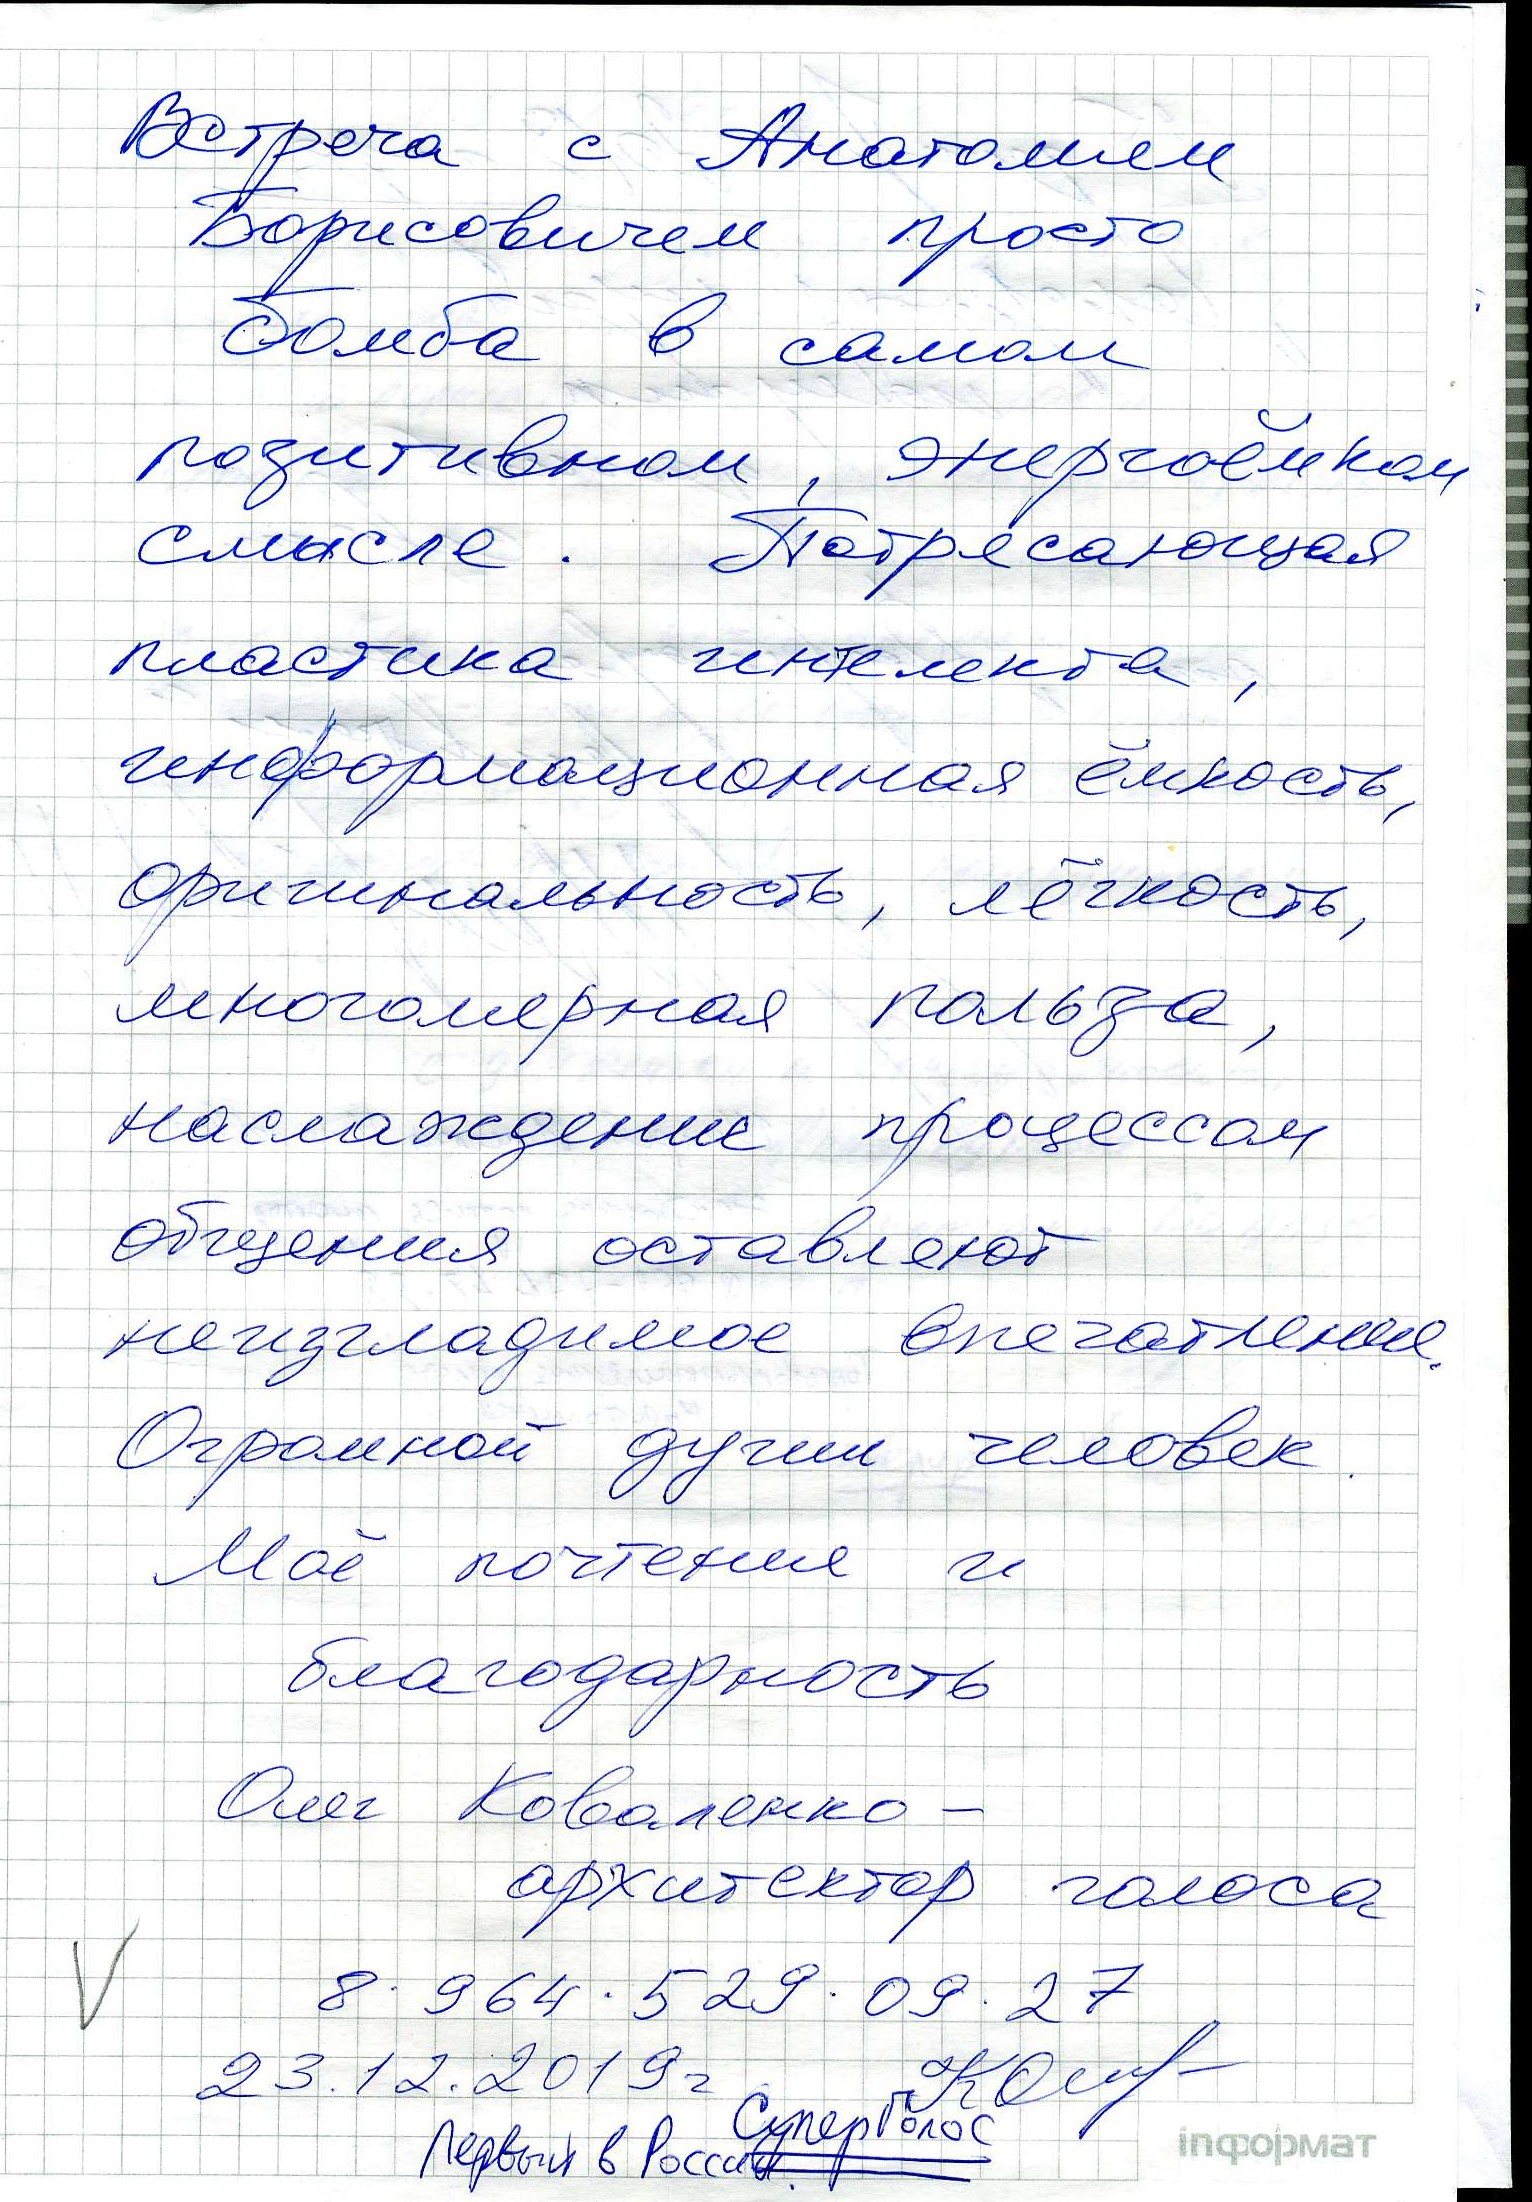 Встреча с Анатолием
Борисовичем просто
бомба в самом
позитивном, энергоёмком
смысле. Потрясающая
пластика интелекта,
информационная ёмкость,
оригинальность, лёгкость,
многомерная польза,
наслаждение процессом
общения оставляют
неизгладимое впечатление.
Огромной души человек.
Моё почтение и
благодарность
Олег Коваленко –
архитектор голоса
8.964.529.09.27
23.12.2019г
СуперГолос
Первый в России
inформат